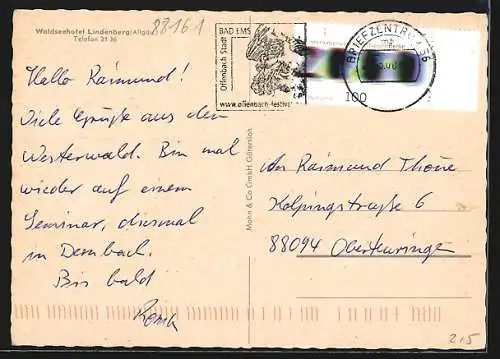 Waldseehotel Lindenberg/Allgäu
Telefon 21 26
88161
BAD EMS
Offenbach Stadt
www.offenbach-festival
BRIEFZENTRUM 56
100
Hallo Raimund!
Viele Grüße aus dem
Westerwald. Bin mal
wieder auf einem
Seminar, diesmal
in Dernbach.
Bis bald
Mohn & Co GmbH, Gütersloh
An Raimund Thöne
Kolpingstraße 6
88094 Oberteuringen
215